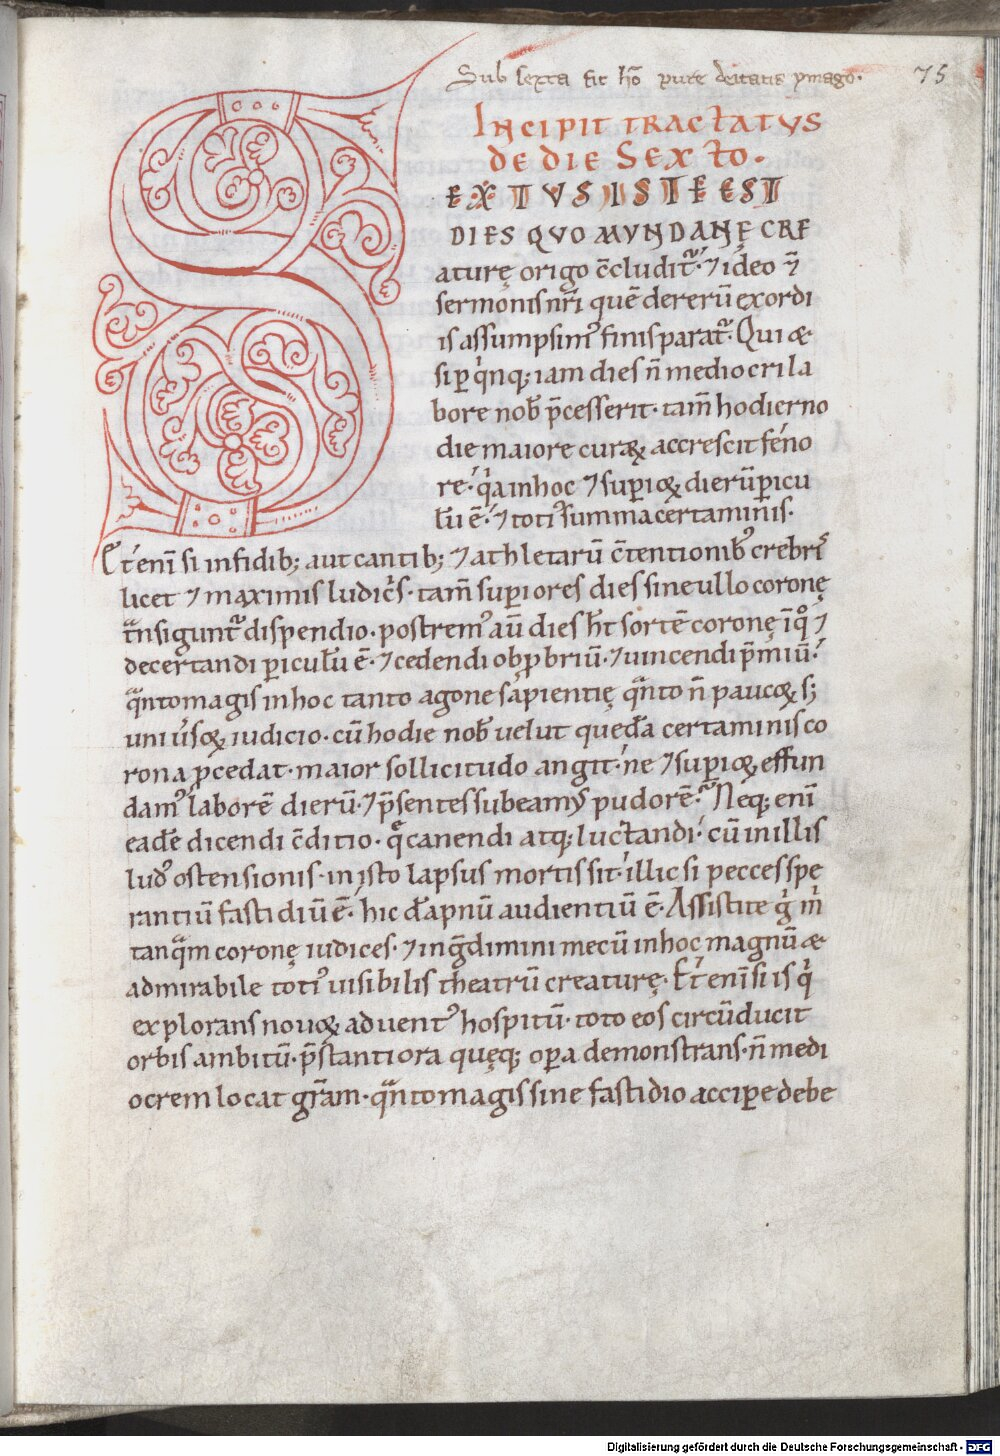 Sub sexta fit hō pure deitatis ymago.
75
INCIPIT TRACTATVS
DE DIE SEXTO.
SEXTVS ISTE EST
DIES QVO MVNDANĘ CRE
aturę origo c̄cludit᷑· ⁊ ideo ⁊̄
sermonis nr̄i quē de rerū exordi
is assumpsim᷒ finis parat᷑· Qui &
si ꝑ q̇nq; iam dies n̄ mediocri la
bore nob̄ p̄cesserit· tam̄ hodierno
die maiore curaꝝ accrescit féno
re· q̇a in hoc ⁊ supioꝝ dierū ꝑicu
lū ē· ⁊ toti᷒ summa certaminis·
Et́enī si in fidib; aut cantib; ⁊ athletarū c̄tentionib᷒ crebrı̇̄
licet ⁊ maximis ludic̄s· tam̄ supiores dies sine ullo coronę
t̄nsigunt᷑ dispendio· postrem᷒ aū dies ht̄ sortē coronę ı̄q̊ ⁊
decertandi ꝑiculū ē· ⁊ cedendi obp̱briū· ⁊ uincendi p̄miū·
q̄nto magis in hoc tanto agone sapientię q̄nto n̄ paucoꝝ s;
uniu̇soꝝ iudicio· cū hodie nob̄ uelut quedā certaminis co
rona ꝓcedat· maior sollicitudo angit· ne ⁊ supioꝝ effun
dam᷒ laborē dierū· ⁊ p̄sentes subeam᷒ pudorē· Neq; enī
eadē dicendi c̄ditio· q̄ canendi atq; luctandi· cū in illis
lud᷒ ostensionis· in isto lapsus mortis sit· illic si pecces spe
rantiū fastidiū ē· hic dāpnū audientiū ē· Assistite ġ m̊
tanq̄m coronę iudices· ⁊ ing̊dimini mecū in hoc magnū &
admirabile toti᷒ uisibilis theatrū creaturę· Et́enī si is q̇
explorans nouoꝝ aduent᷒ hospitū· toto eos circūducit
orbis ambitū· p̄stantiora quęq; opera demonstrans· n̄ medi
ocrem locat gr̄am· q̄nto magis sine fastidio accipe debe
Digitalisierung gefördert durch die Deutsche Forschungsgemeinschaft - DFG